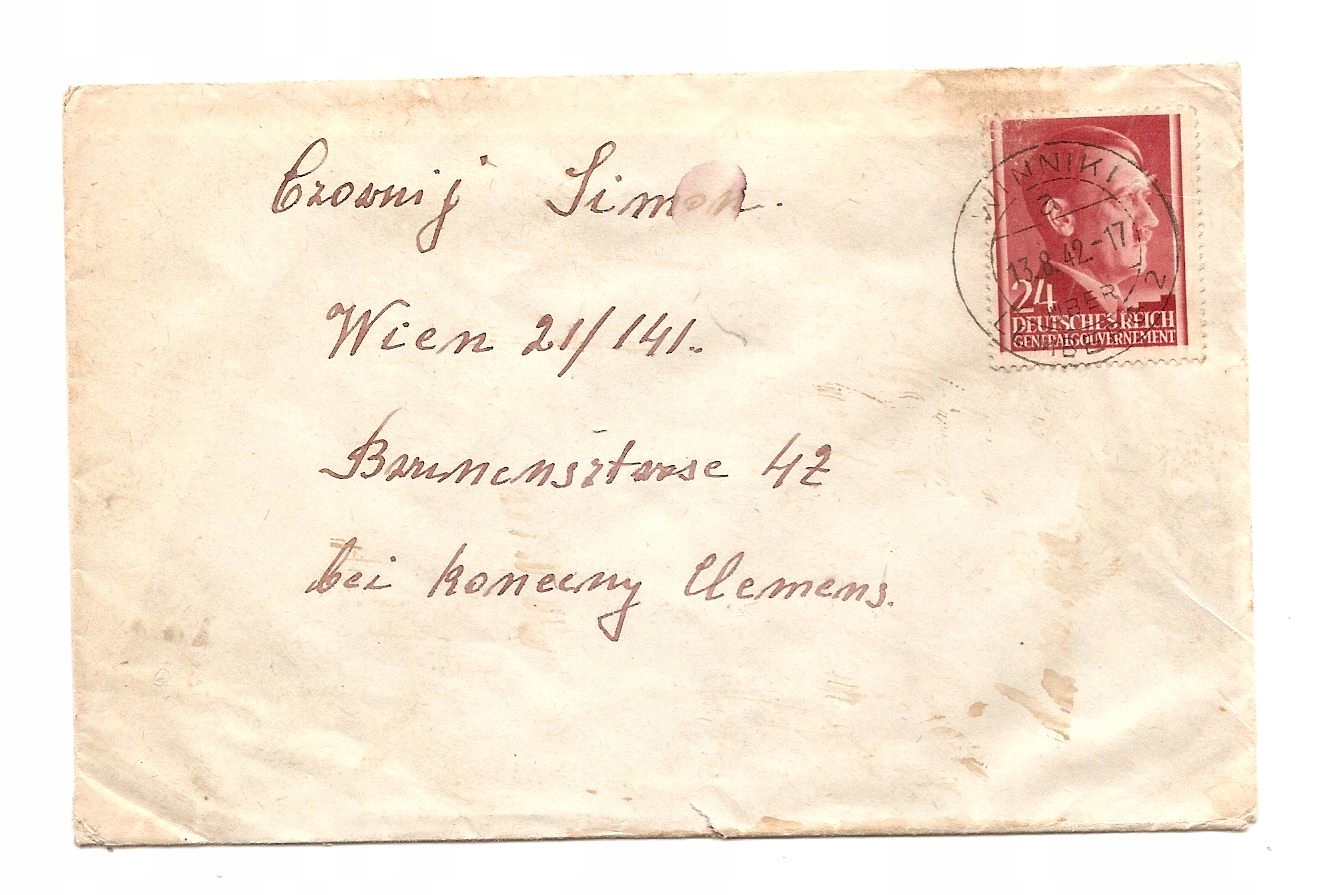 Czornij Simon.
Wien 21/141.
Brunensztrasse 42
bei Konecny Clemens.
WINNIKI
a
13.8.42.-17
24
DEUTSCHES REICH
GENERALGOUVERNEMENT